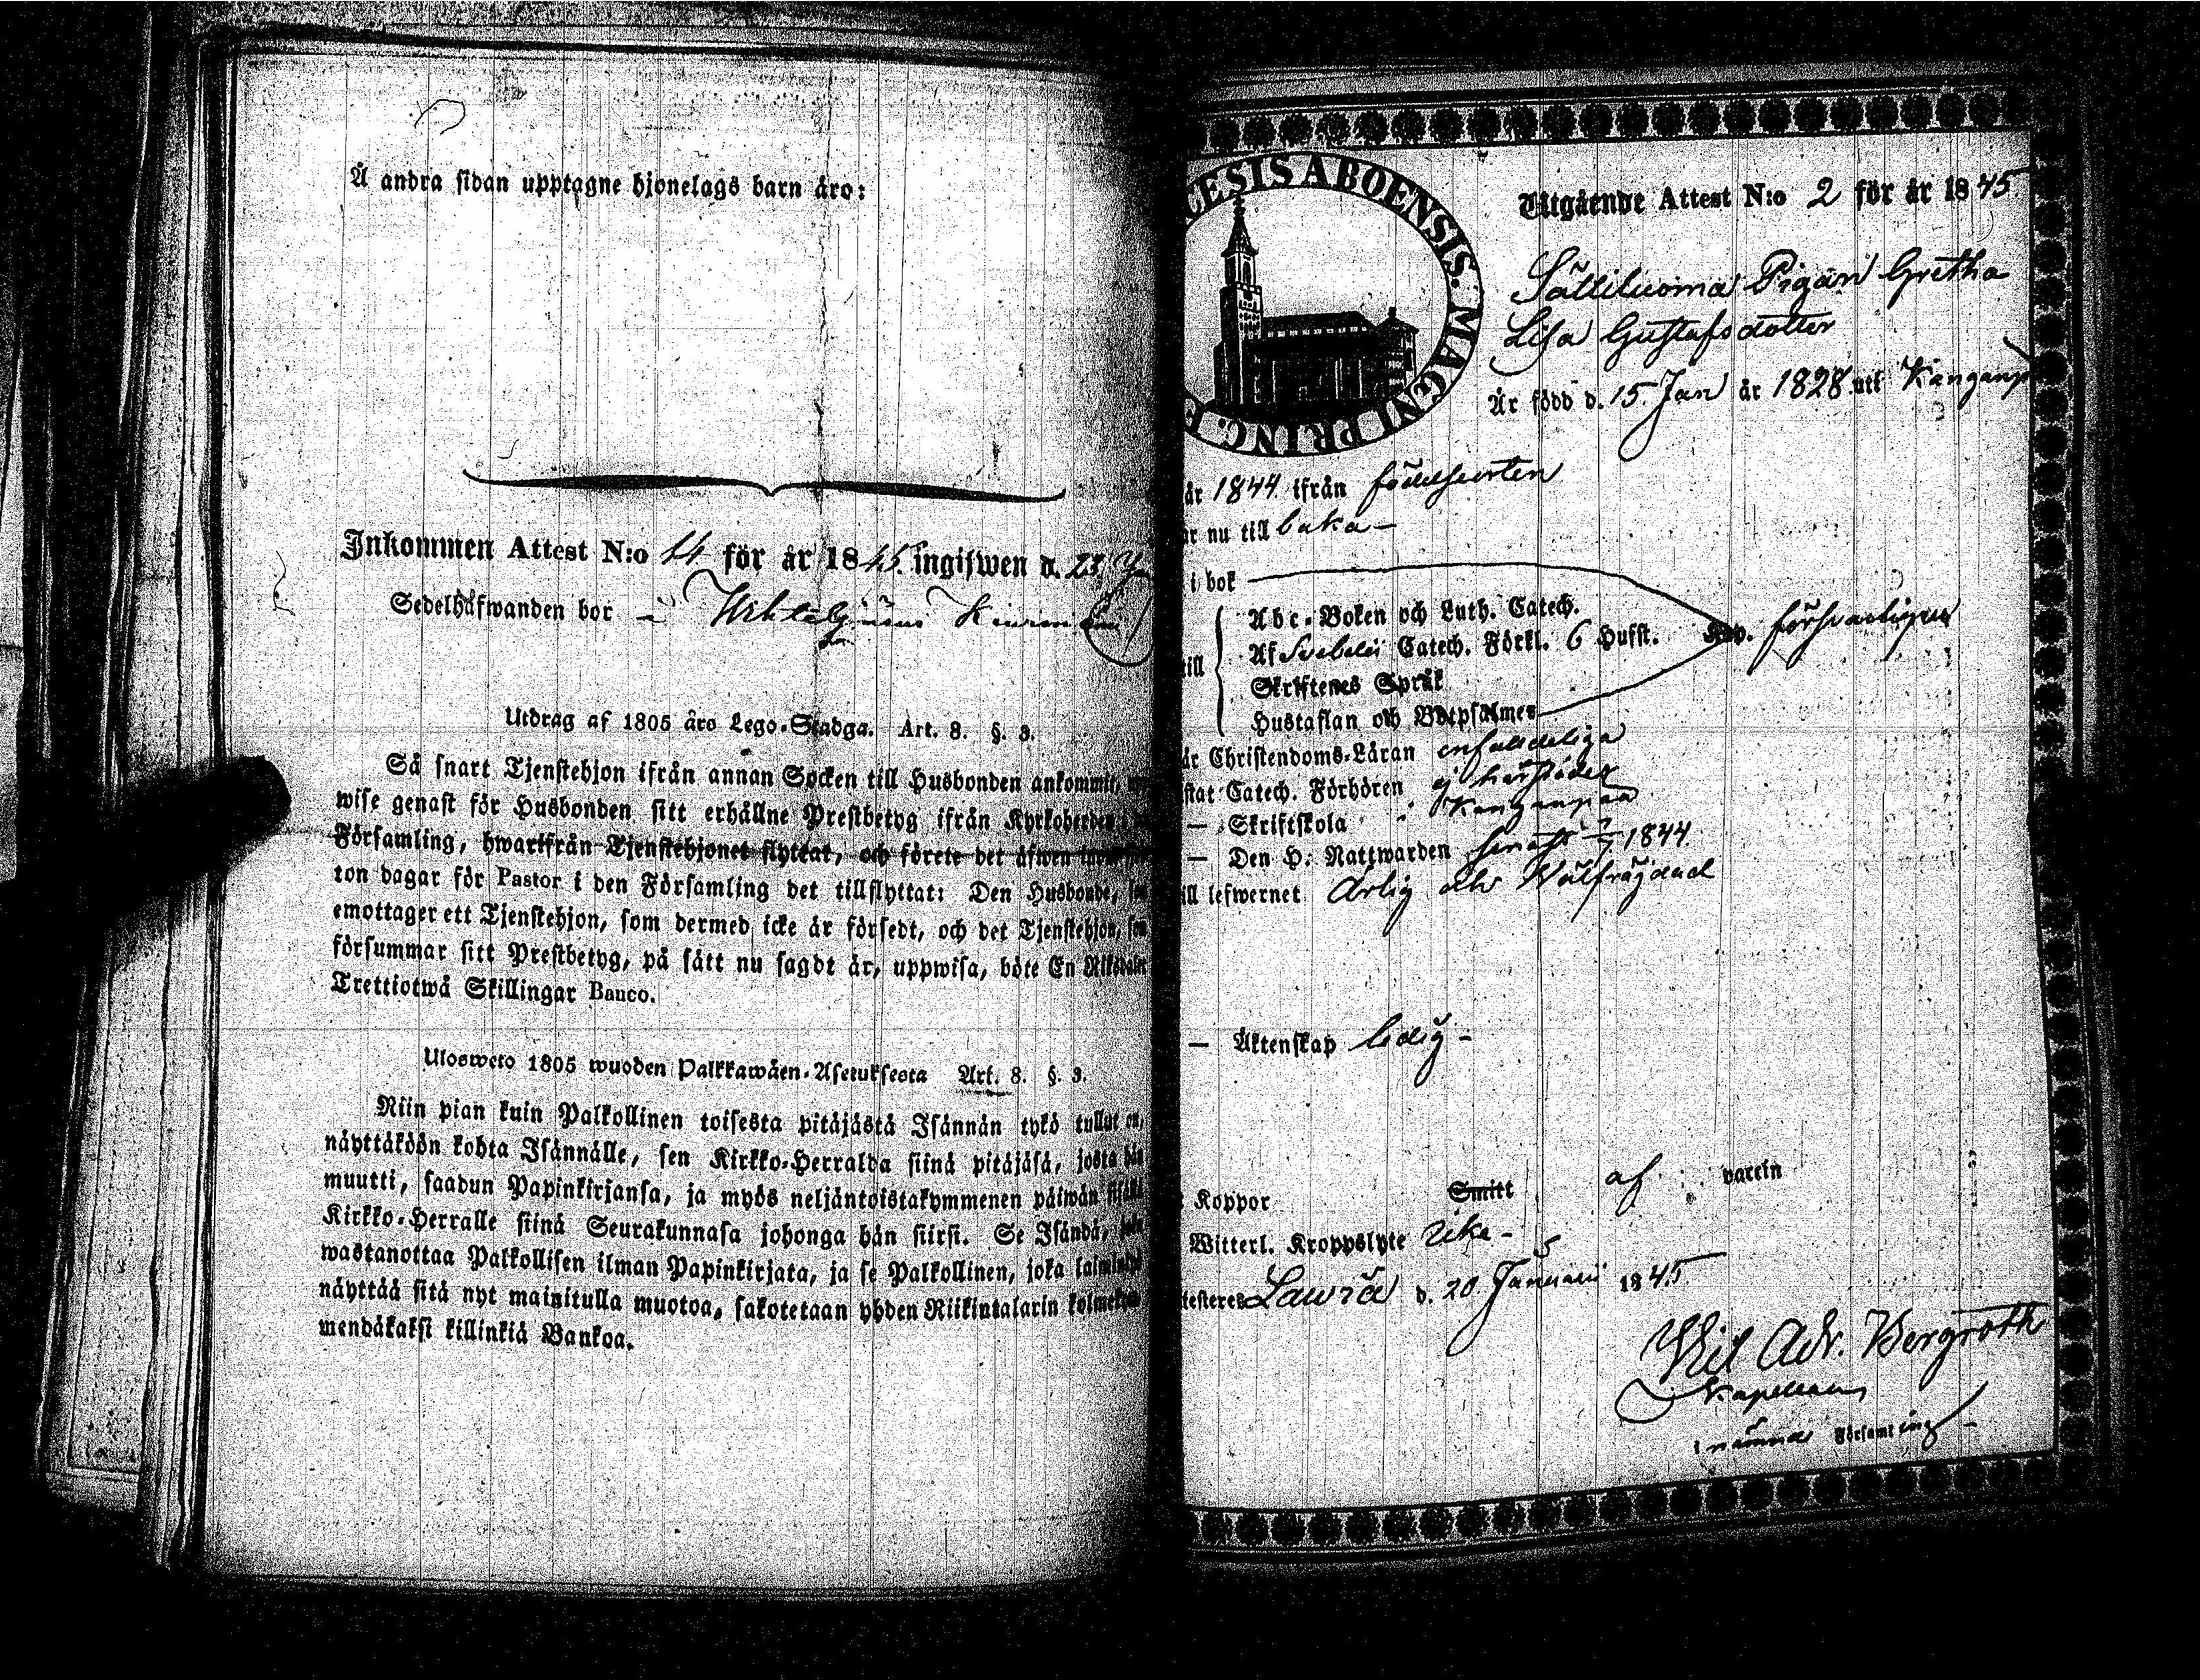 Å andra sidan upptagne hjonelags barn äro:
Inkommen Attest N:o 14 för år 1845. ingifwen d. 23.
Sedelhafwanden bor
Utdrag af 1805 års Lego-Stadga. Art. 8. §. 3.
Så snart Tjenstehjon ifrån annan Socken till Husbonden ankommit,
wise genast för Husbonden sitt erhållne Prestbetyg ifrån Kyrkoherden
Församling, hwarifrån Tjenstehjonet flyttat, och förete det äfwen
ton dagar för Pastor i den Församling det tillflyttat: Den Husbonde,
emottager ett Tjenstehjon, som dermed icke är försedt, och det Tjenstehjon, som
försummar sitt Prestbetyg, på sätt nu sagdt är, uppwisa, böte En Riksdaler
Trettiotwå Skillingar Banco.
Ulosweto 1805 wuoden Palkkawäen-Asetuksesta Art. 8. §. 3.
Niin pian kuin Palkollinen toisesta pitäjästä Isännän tykö tullut on,
näyttäköön kohta Isännälle, sen Kirkko-Herralda siinä pitäjäsä, josta hän
muutti, saadun Papinkirjansa, ja myös neljäntoistakymmenen päiwän sisällä
Kirkko-Herralle siinä Seurakunnasa johonga hän siirsi. Se Isändä, joka
wastanottaa Palkollisen ilman Papinkirjata, ja se Palkollinen, joka
näyttää sitä nyt mainitulla muotoa, sakotetaan yhden Riikintalarin kolmekym
mendäkaksi killinkiä Bankoa.
CESIS ABOENSIS. MAGNI PRINC. F
Utgående Attest N:o 2 för år 1845
Sälliluoma Pigan Gretha
Lisa Gustafsdotter
Är född d. 15. Jan år 1828 uti
år 1844 ifrån födelseorten
ar nu till baka —
i bok
till
Abc-Boken och Luth. Catech.
Af Svebelii Catech. Förkl. 6 Hufst. försvarligen
Skriftenes Språk
Hustaflan och Botpsalmer
är Christendoms-Läran enfaldeliga
stat Catech. Förhören ej härstädes
— Skriftskola Kangampää
— Den H. Nattwarden senast 1844.
ill lefwernet Ärlig och Wälfrägdad
— Äktenskap ledig —
Koppor Smitt af varein
Witterl. Kroppslyte Icke —
testeres Lawia d. 20 Januarii 1845
Wil Adr. Bergroth
Kapellan
i nämnde Församling —